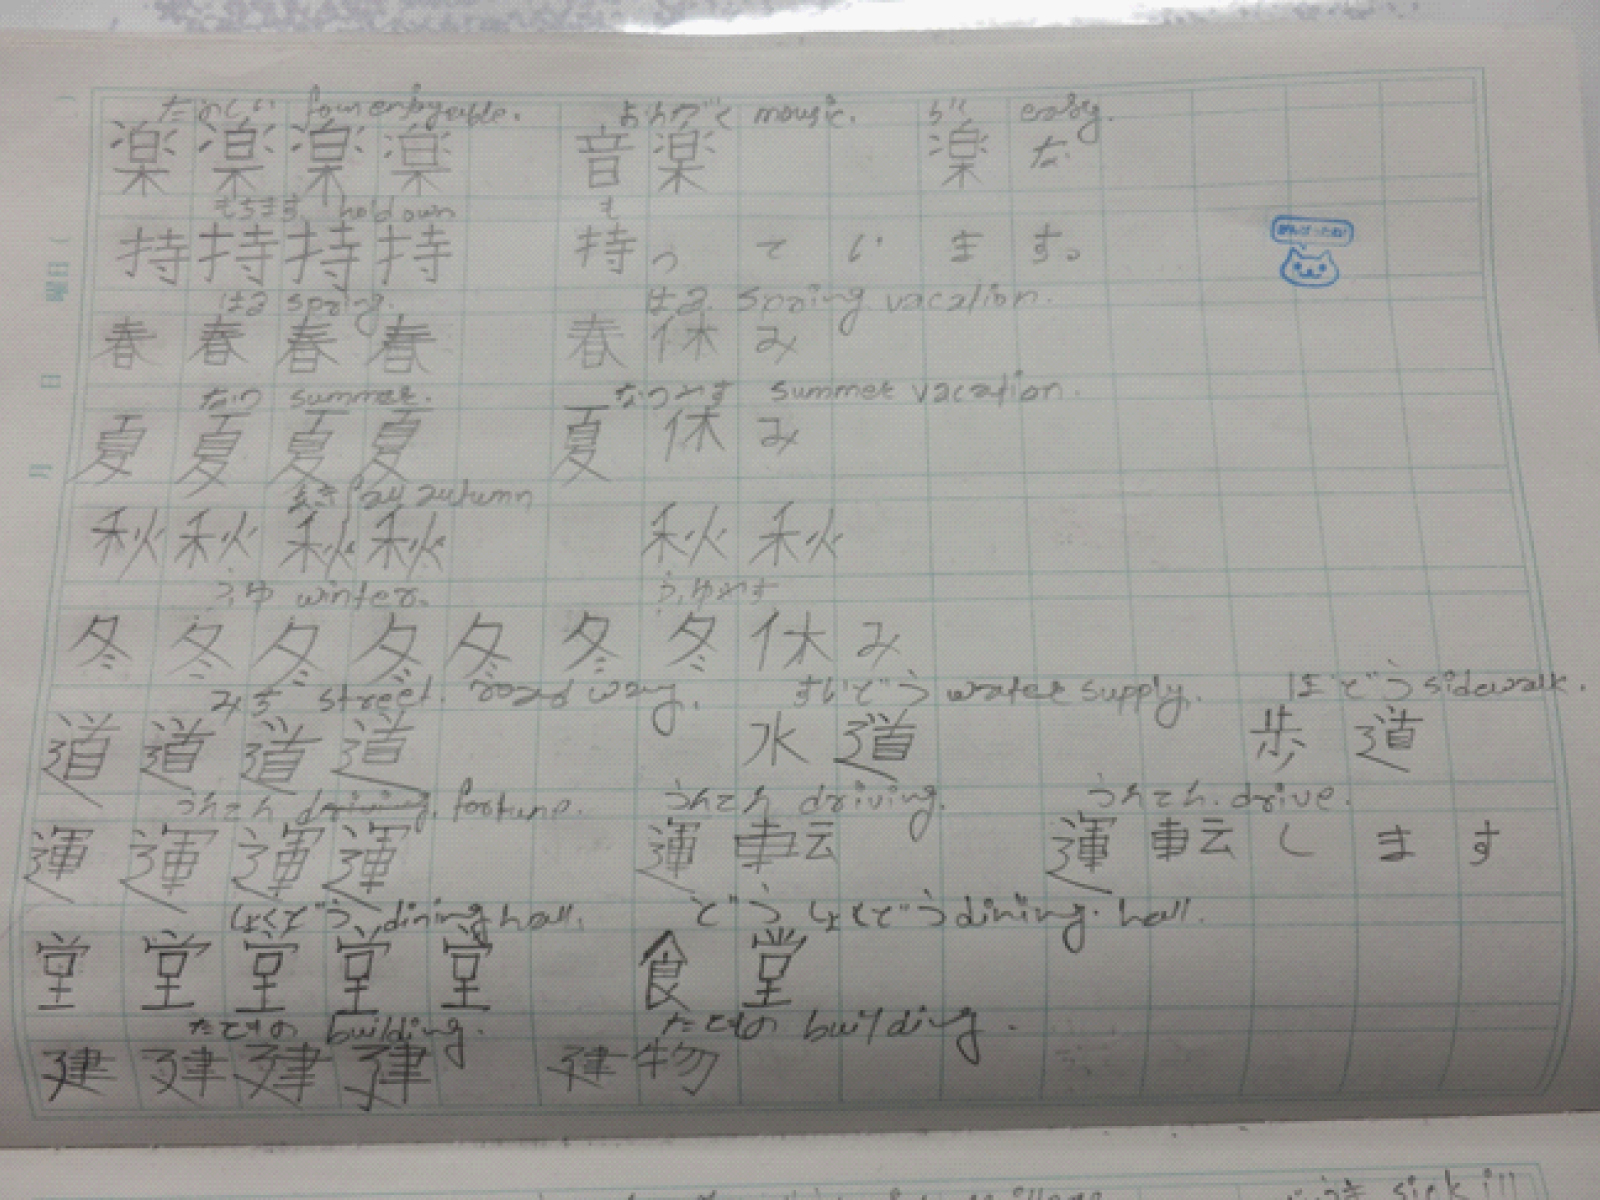 たのしい fun enjoyeable. おんがく mousic. らく easy.
楽 楽 楽 楽 音 楽 楽 な
もちます hold own も
持 持 持 持 持 っ て い ま す。
がんばったね!
はる spring. はる spring vacation.
春 春 春 春 春 休 み
なつ summer. なつやす summer vacation.
夏 夏 夏 夏 夏 休 み
あき fall autumn
秋 秋 秋 秋 秋 秋
ふゆ winter. ふゆやす
冬 冬 冬 冬 冬 冬 冬 休 み
みち street. road way. すいどう water supply. ほどう sidewalk.
道 道 道 道 水 道 歩 道
うんてん driving. fortune. うんてん driving. うんてん. drive.
運 運 運 運 運 転 運 転 し ま す
しょくどう dining hall. どう しょくどう dining. hall.
堂 堂 堂 堂 堂 食 堂
たてもの building. たてもの building.
建 建 建 建 建 物
月 日 ( 曜日 )
sick ill